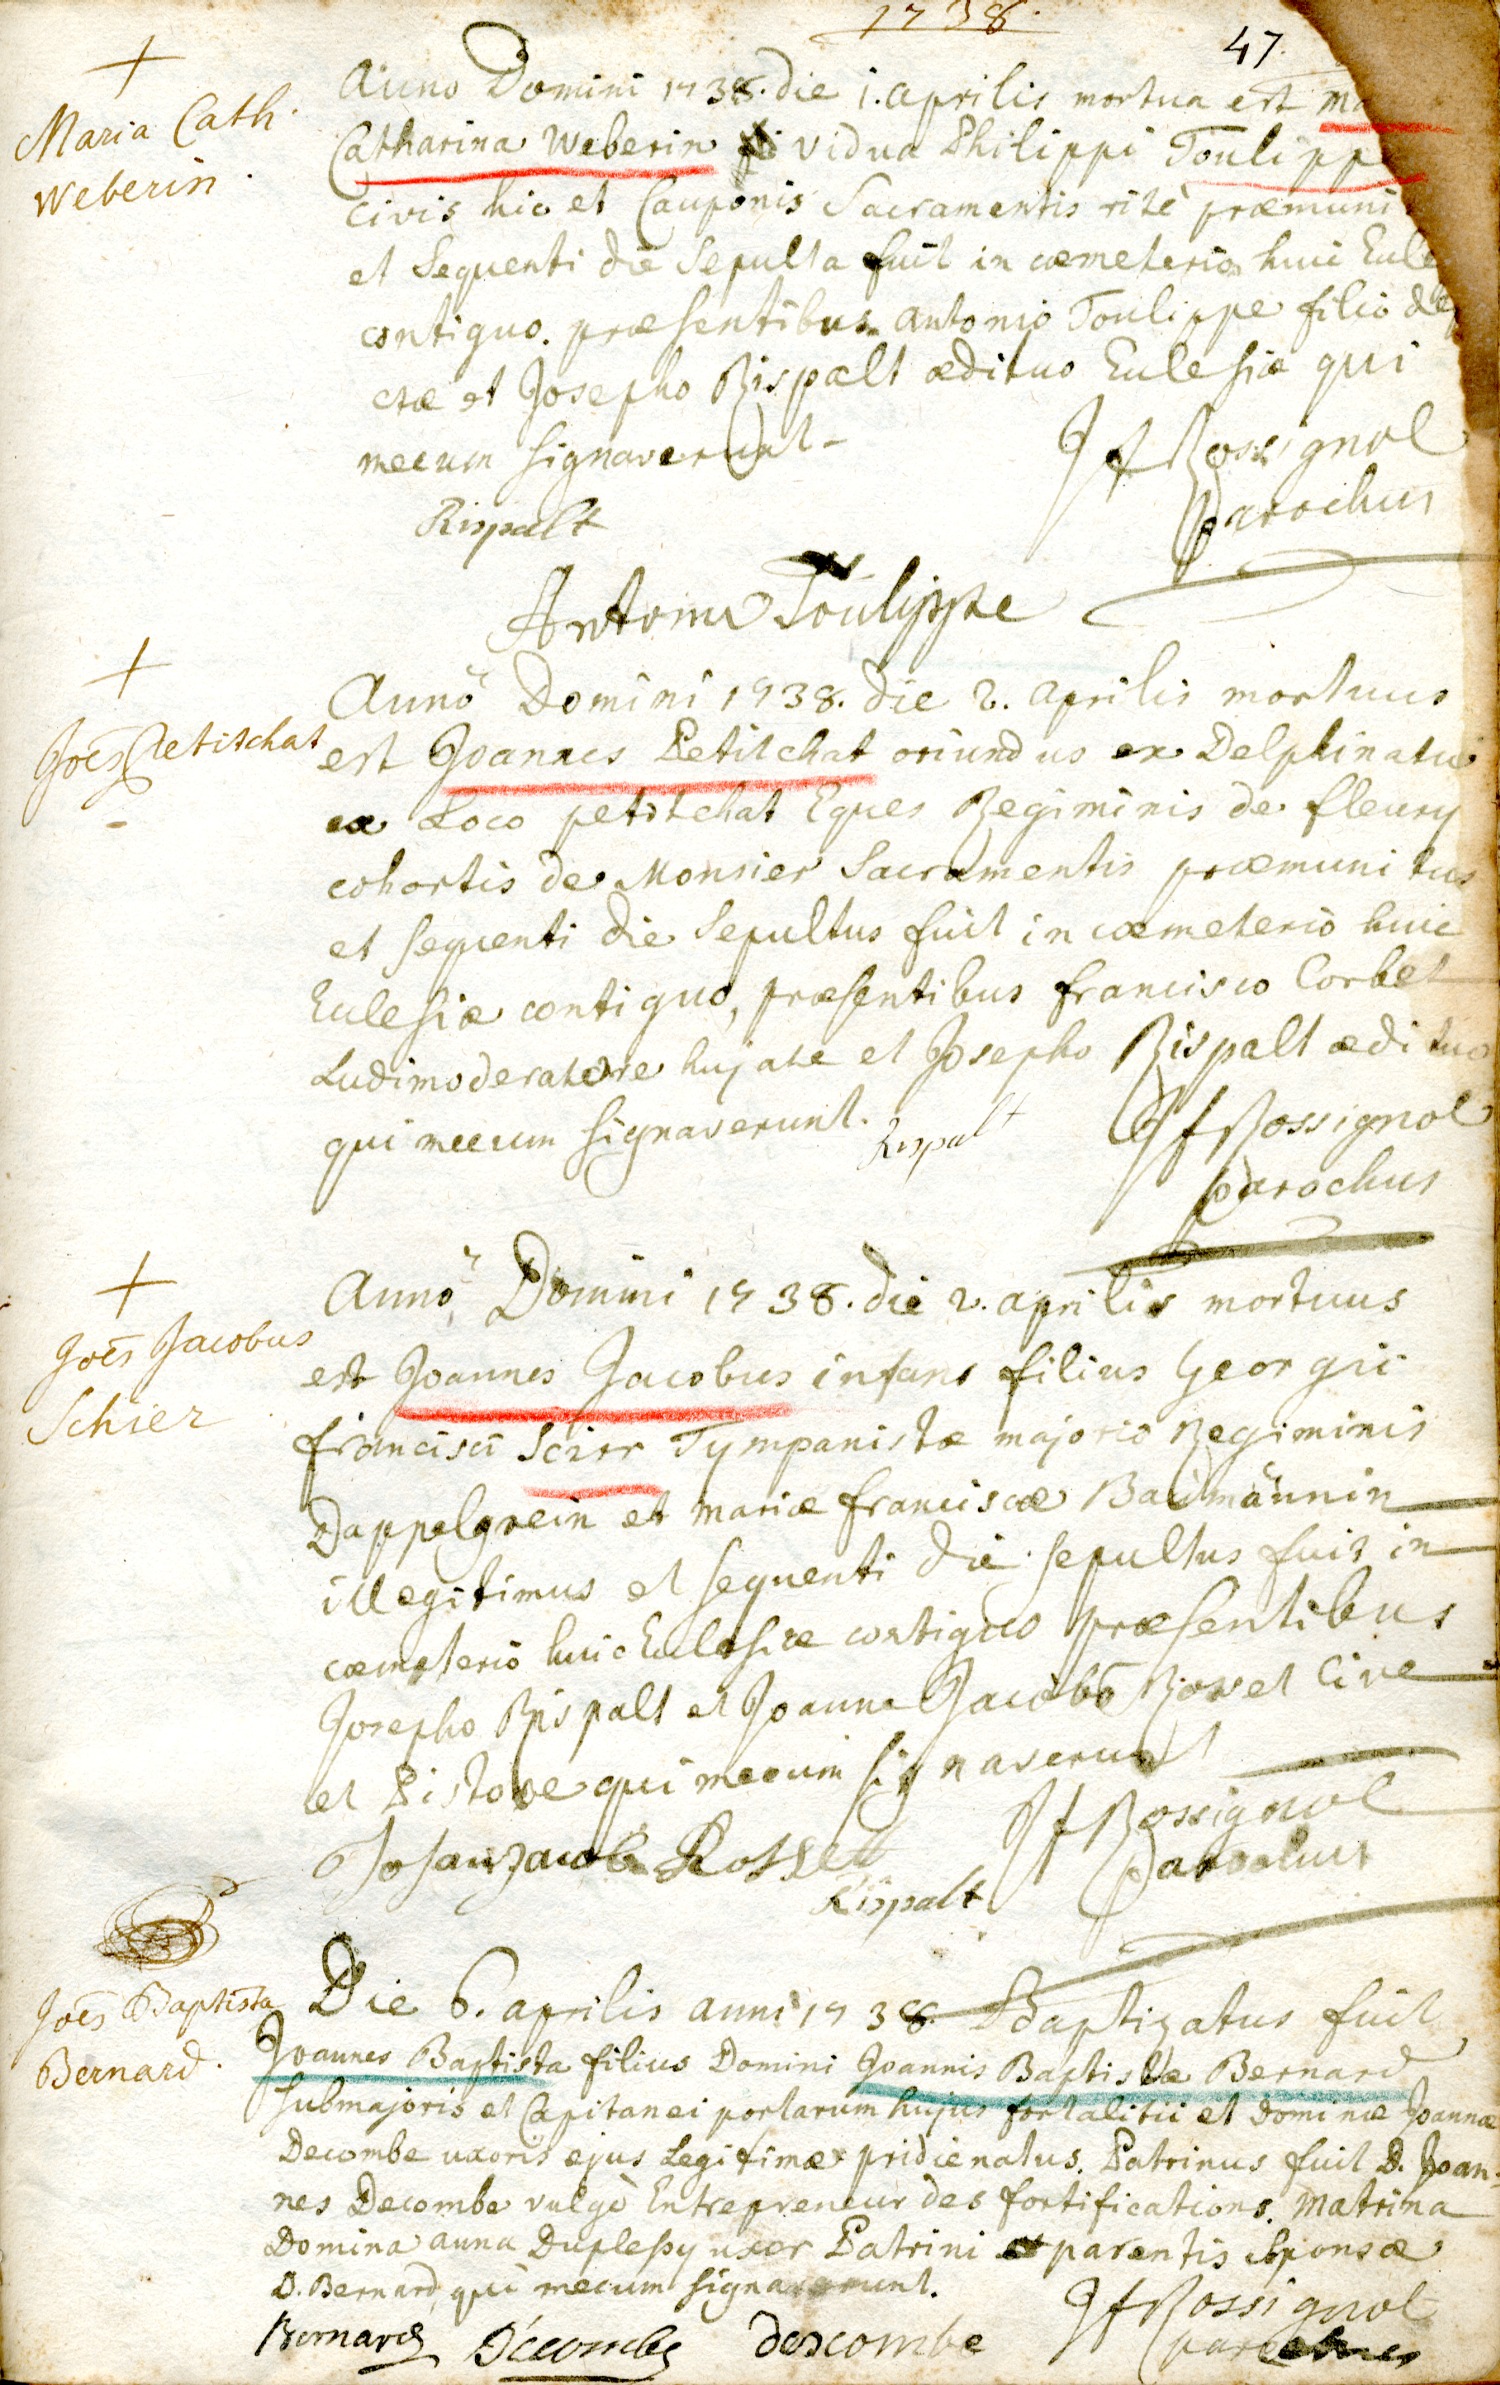 1738.
47.
Maria Cath.
Weberin.
Anno Domini 1738. die 1. aprilis mortua est Ma
Catharina Weberin vidua Philippi Toulipp
civis hic et Cauponis Sacramentis ritè præmuni
et Sequenti die Sepulta fuit in cœmeterio huic Eccle
contiguo. præsentibus Antonio Toulippe filio def
ctæ et Josepho Rispalt ædituo Ecclesiæ qui
mecum signaverunt -
JfRossignol
Parochus
Rispalt
Antoniu Toulippe
Joēs Petitchat
Annõ Domini 1738. die 2. aprilis mortuus
est Joannes Petitchat oriundus ex Delphinatu
ex Loco petitchat Eques Regiminis de fleury
cohortis de Monsier Sacramentis præmunitus
et sequenti die Sepultus fuit in cœmeterio huic
Ecclesiæ contiguo, præsentibus francisco Corbet
Ludimoderatore hujate et Josepho Rispalt ædituo
qui mecum signaverunt.
Rispalt
JfRossignol
parochus
Joēs Jacobus
Schier
Annõ Domini 1738. die 2. aprilis mortuus
est Joannes Jacobus infans filius Georgii
francisci Scirr Tympanistæ majoris Regiminis
Dappelgrein et mariæ franciscæ Baumännin
illegitimus et sequenti die sepultus fuit in
cœmeterio huic Ecclesiæ contiguo præsentibus
Josepho Rispalt et Joanne Jacobo Roset Cive
et Pistore qui mecum signaverunt
JfRossignol
Parochus
Johan Jacob Rosse
Rispalt
Joēs Baptista
Bernard.
Die 6. aprilis anni 1738 Baptizatus fuit
Joannes Baptista filius Domini Joannis Baptistæ Bernard
submajoris et Capitanei portarum hujus fortalitii et Dominæ Joannæ
Decombe uxoris ejus Legitimæ pridie natus. Patrinus fuit D. Joan-
nes Decombe vulgò Entrepreneur des fortifications. Matrina
Domina anna Duplessy uxor Patrini et parentis Sponsæ
D. Bernard, qui mecum signaverunt.
JfRossignol
parochus
Bernard Decombe descombe